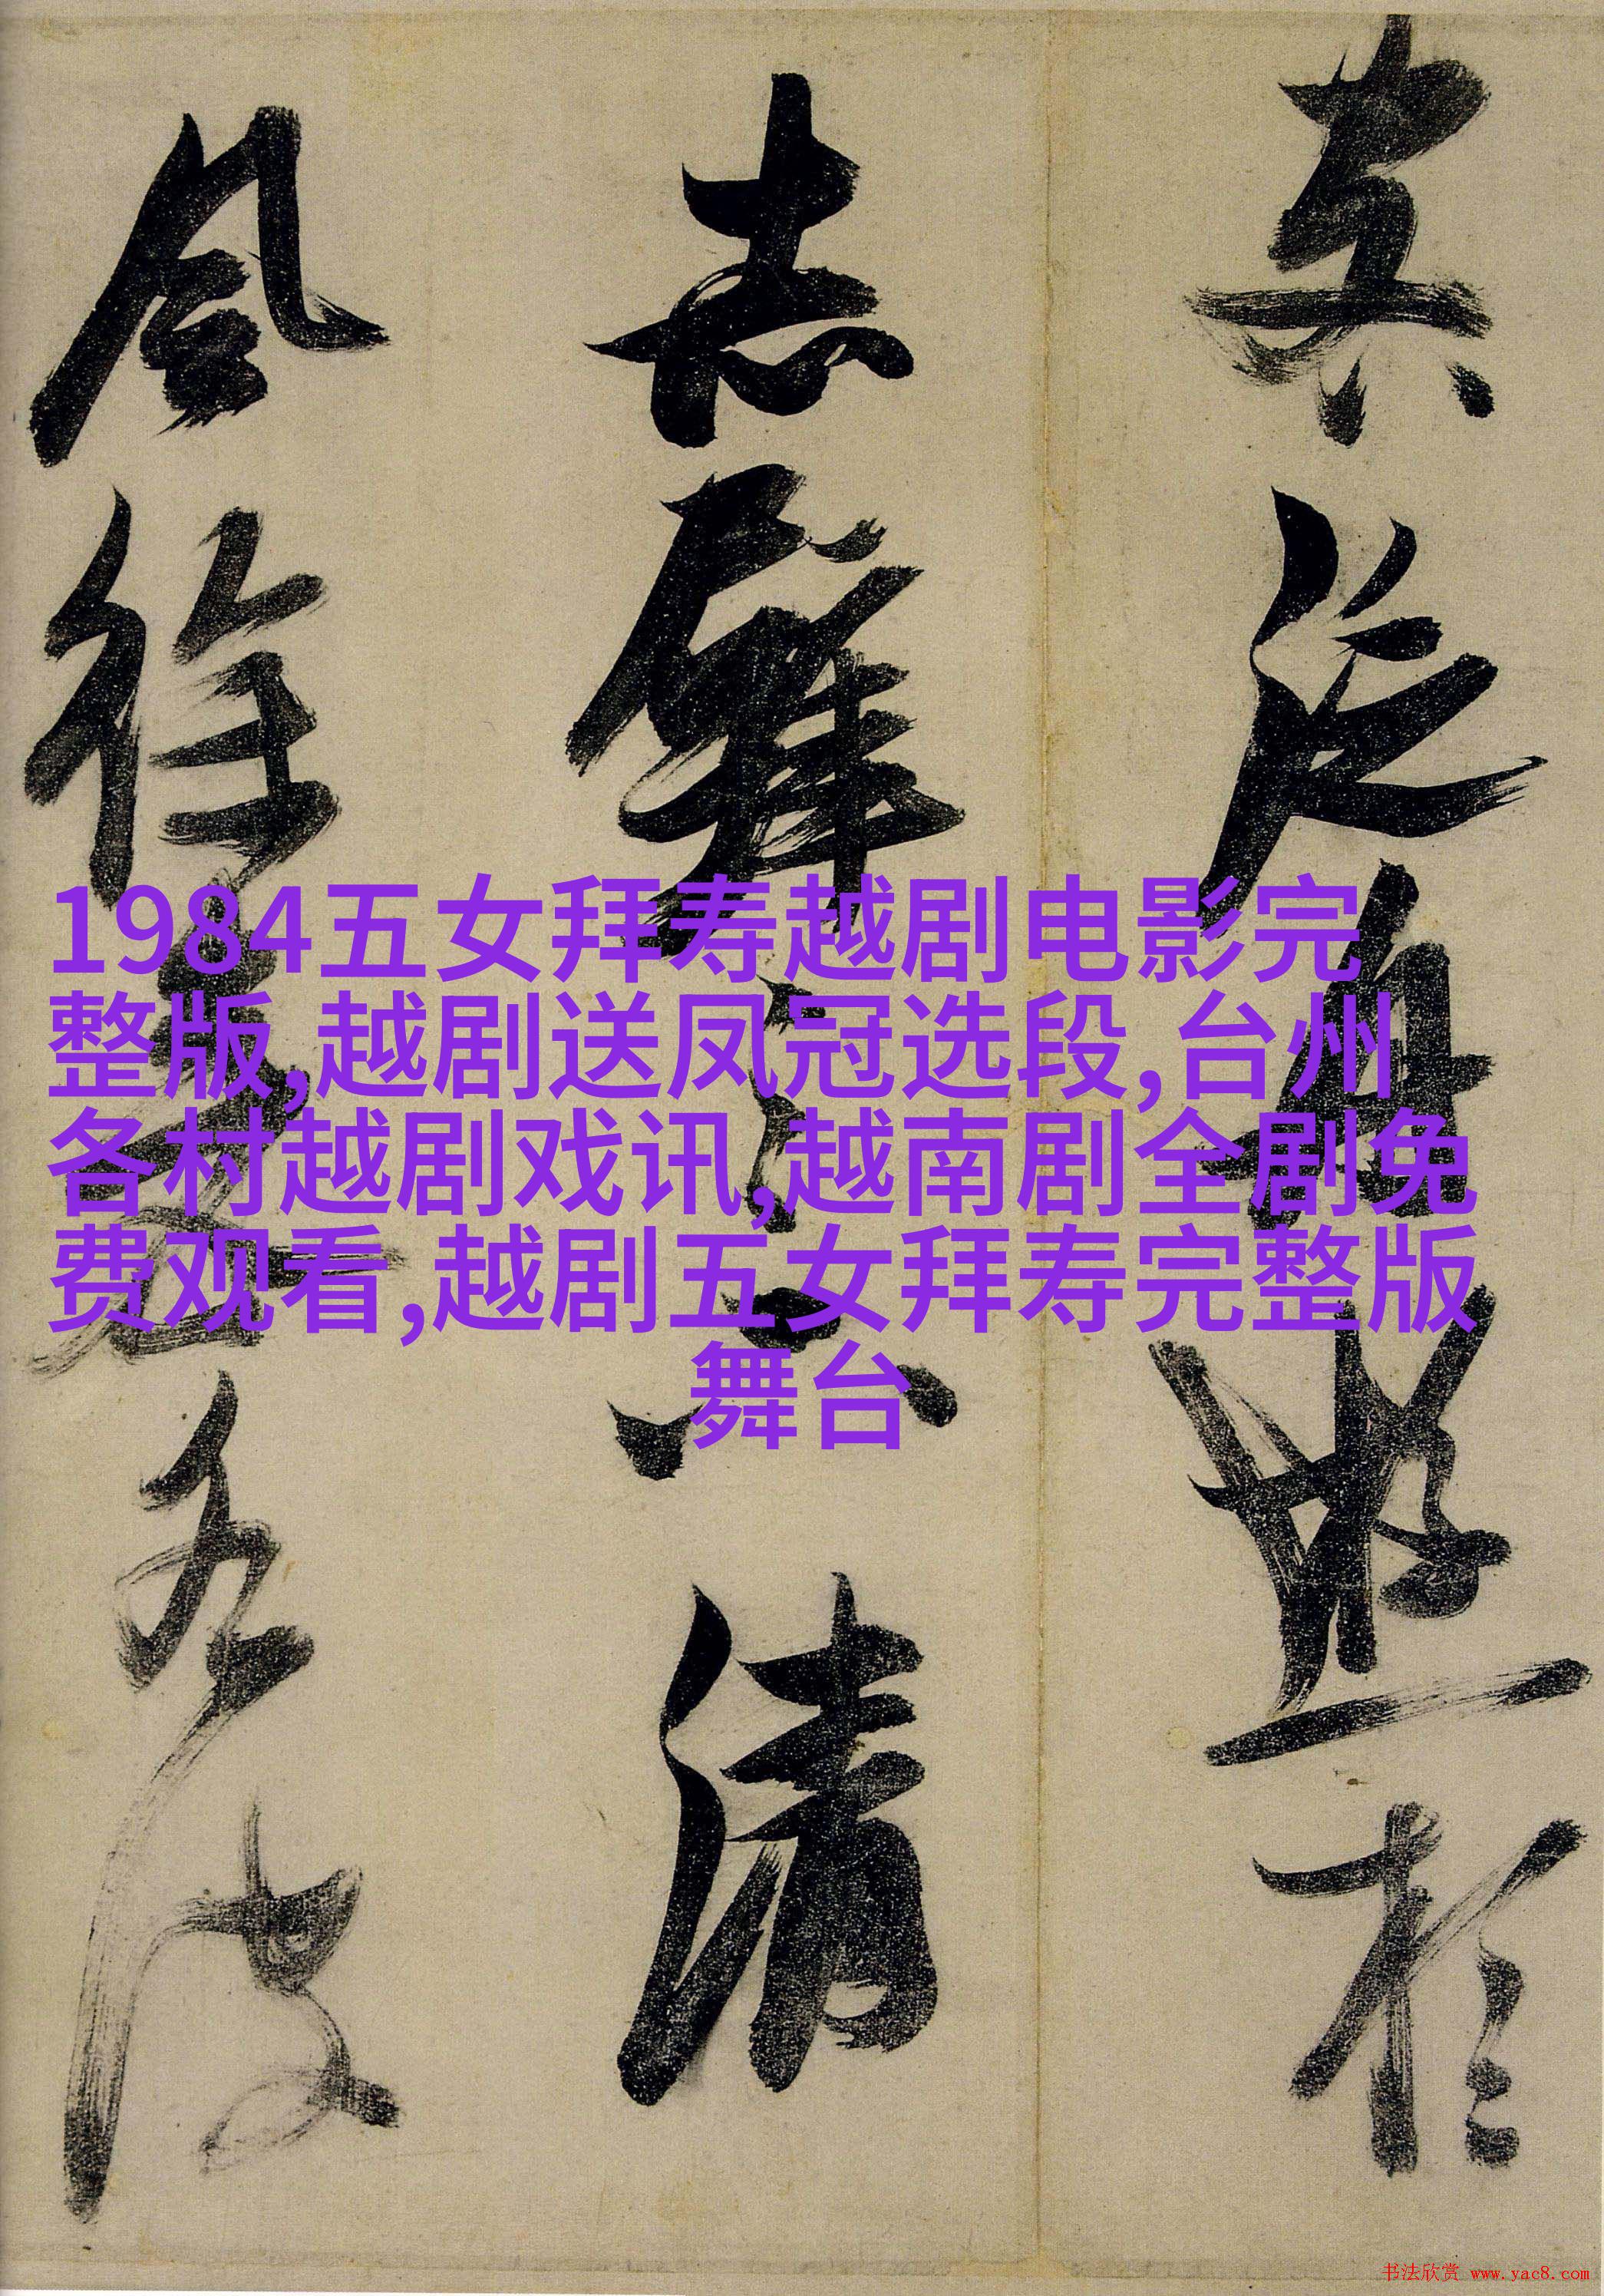 泛舟遊於
赤壁之下清
風徐來水波
1984五女拜寿越剧电影完
整版,越剧送凤冠选段,台州
各村越剧戏讯,越南剧全剧免
费观看,越剧五女拜寿完整版
舞台
书法欣赏 www.yac8.com